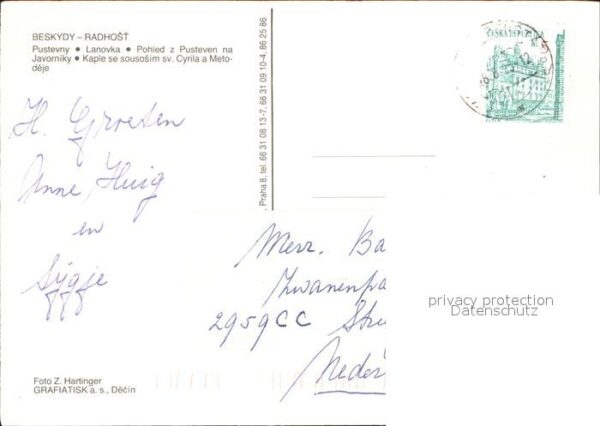 BESKYDY – RADHOŠŤ
Pustevny • Lanovka • Pohled z Pusteven na
Javorníky • Kaple se sousoším sv. Cyrila a Meto-
děje
H. Groeten
Anne Huig
en
Sytje
Foto Z. Hartinger
GRAFIATISK a. s., Děčín
, Praha 8, tel. 66 31 08 13-7, 66 31 09 10-4, 86 25 86
ČESKÁ REPUBLIKA
5
Merr. Ba
Zwanenpa
2959CC Stre
Neder
privacy protection
Datenschutz